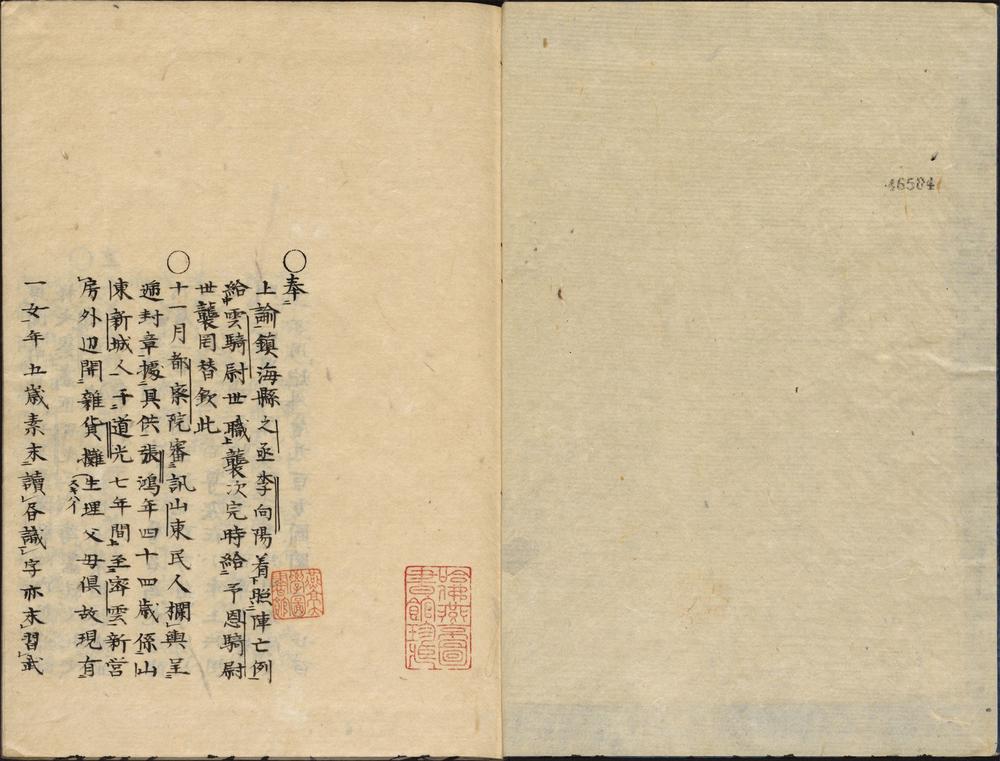 46584
○奉
上諭鎮海縣之丞李向陽着照陣亡例
給雲騎尉世職襲次完時給予恩騎尉
世襲罔替欽此
○十一月都察院審訊山東民人攔輿呈
遞封章據具供張鴻年四十四歲係山
東新城人于道光七年間至密雲新營
房外边開雜貨攤生理父毋俱故現有
一女年五歲素未讀各識字亦未習武
哈佛燕京圖
書館珍藏